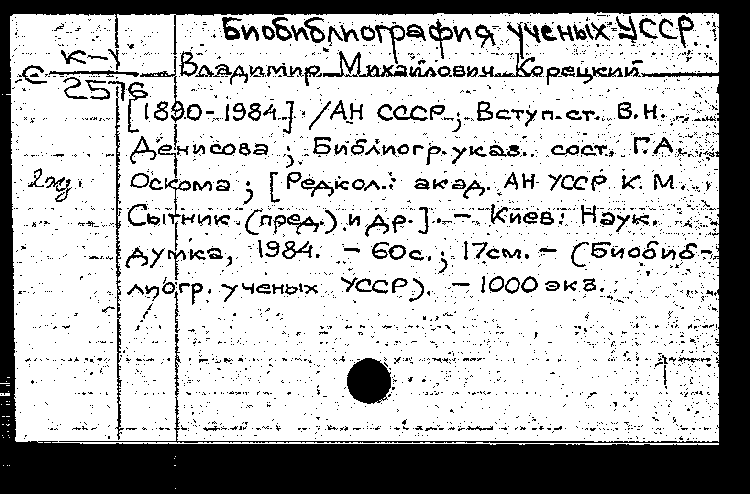 Биобиблиография ученых УССР
К-1
Є
2576
Владимир Михайлович Корецкий
[1890-1984] /АН СССР; Вступ.ст. В.Н.
Денисова; Библиогр.указ. сост. Г.А.
2 экз.
Оскома; [Редкол.: акад. АН УССР К.М.
Сытник (пред.) и др.]. - Киев: Наук.
думка, 1984. - 60с.; 17см. - (Биобиб-
лиогр. ученых УССР). - 1000 экз.